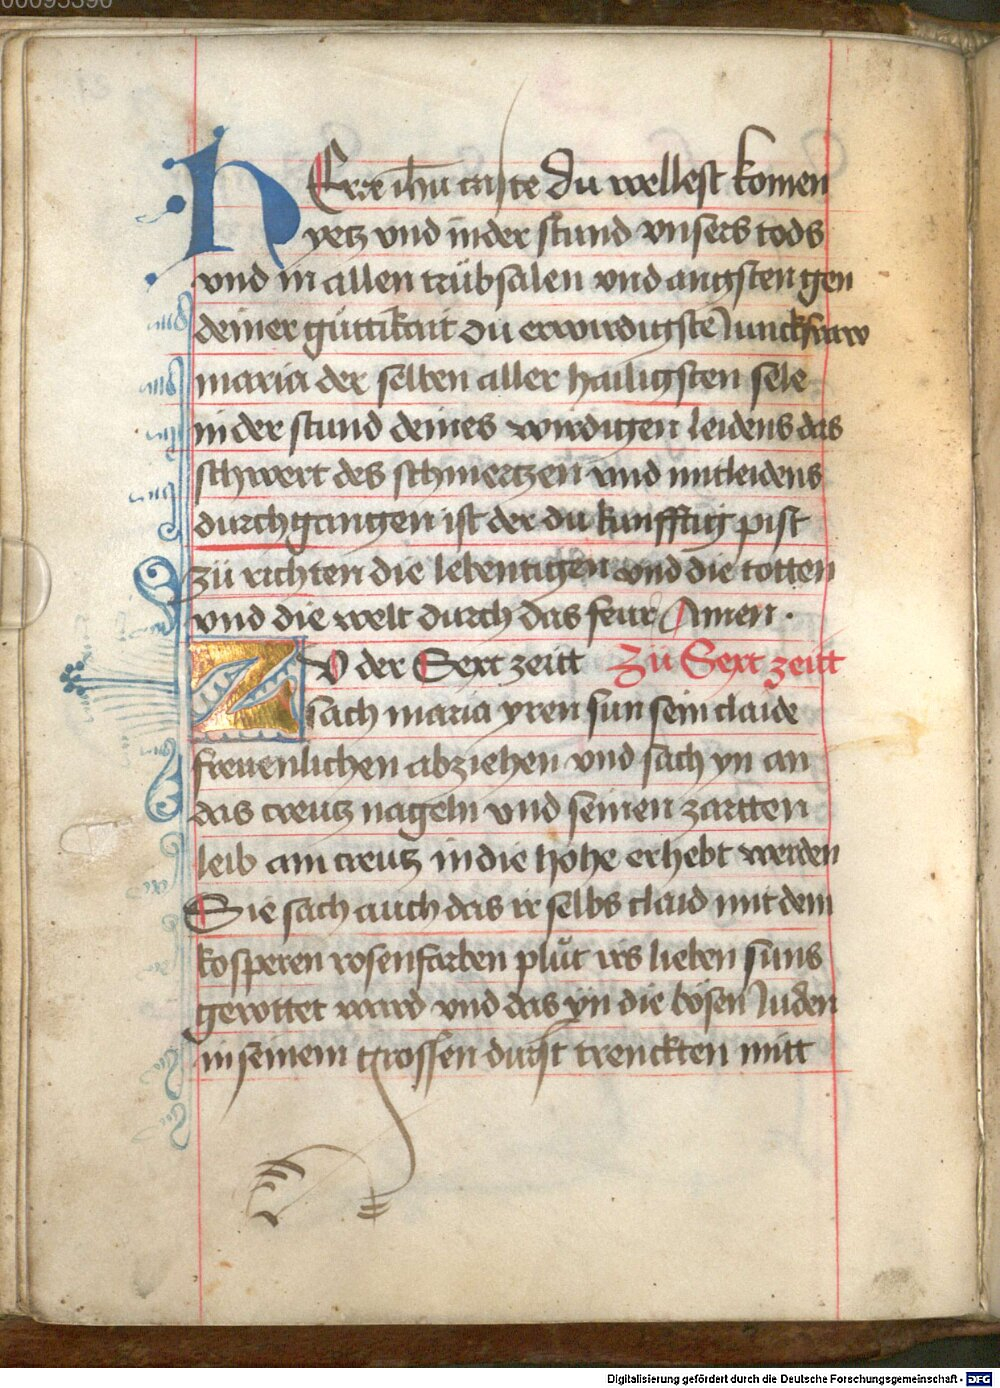 00095390
HErre ihu criste Du wellest komen
yetz vnd inder stund vnsers tods
vnd in allen trübsalen vnd angsten gen
deiner güttikait du erwirdigste Junckfraw
maria der selben aller hailigsten sele
inder stund deines wirdigen leidens das
schwert des schmertzen vnd mitleidens
durchgangen ist der du kunfftig pist
zü richten die lebentigen vnd die totten
vnd die welt durch das feur Amen ·
ZV der Sext zeitt Zu Sext zeitt
sach maria yren sun sein claide
freuenlichen abziehen vnd sach yn an
das creutz nageln vnd seinen zartten
leib am creutz indie höhe erhebt werden
Sie sach auch das ir selbs claid mit dem
kosperen rosenfarben plüt irs lieben suns
gerottet ward vnd das yn die bösen Juden
in seinem grossen durst trenckten mitt
Digitalisierung gefördert durch die Deutsche Forschungsgemeinschaft - DFG